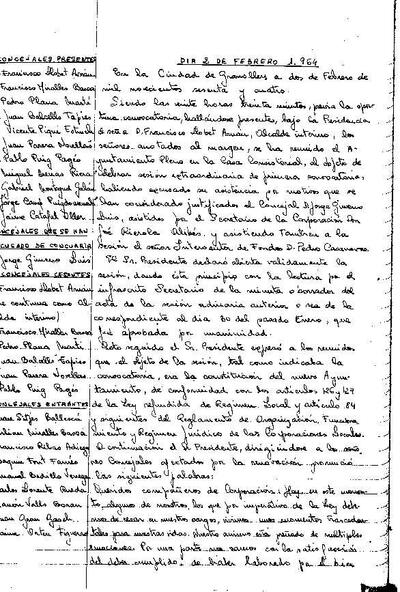 CONCEJALES PRESENTES
Francisco Llobet Arnán
Francisco Miralles Bassa
Pedro Plana
Juan Batallé Tapies
Vicente Piqué Estrada
Juan Parera Novellas
Pablo Puig Pagés
Miquel
Gabriel
Jorge Camp Puigdomenech
Jaime Catafal Oller
CONCEJALES QUE SE HAN
EXCUSADO DE CONCURRIR
Jorge Gimeno Luis
CONCEJALES CESANTES
Francisco Llobet Arnán
se continua como Al-
calde interino)
Francisco Miralles Bassa
Pedro Plana
Juan Batallé Tapies
Juan Parera Novellas
Pablo Puig Pagés
CONCEJALES ENTRANTES
Juan Sitjes
Miralles Bassa
Francisco Ribas
Joaquin Font
Manuel Venegas
Carlos Llorente Rueda
Ramón Valls
Juan Grau Gasch
Jaime Figueras
DIA 2 DE FEBRERO 1.964
En la Ciudad de Granollers a dos de Febrero de
mil novecientos sesenta y cuatro.
Siendo las veinte horas treinta minutos, previa la opor-
tuna convocatoria, hallándose presentes, bajo la Presidencia
del señor D. Francisco Llobet Arnán, Alcalde interino, los
señores anotados al margen, se ha reunido el A-
yuntamiento Pleno en la Casa Consistorial, al objeto de
celebrar sesión extraordinaria de primera convocatoria.
habiendo excusado su asistencia por motivos que se
han considerado justificados el Concejal D. Jorge Gimeno
Luis, asistidos por el Secretario de la Corporación Don
José Rierola Alibés, y asistiendo también a la
sesión el señor Interventor de Fondos D. Pedro Casanovas.
El Sr. Presidente declaró abierta validamente la
sesión, dando esta principio con la lectura por el
infrascrito Secretario de la minuta o borrador del
acta de la sesión ordinaria anterior o sea de la
correspondiente al día 30 del pasado Enero, que
fué aprobada por unanimidad.
Acto seguido el Sr. Presidente expresó a los reunidos
que el objeto de la sesión, tal como indicaba la
convocatoria, era la constitución del nuevo Ayun-
tamiento, de conformidad con los artículos 126 y 127
de la Ley refundida de Regimen Local y artículo 84
y siguientes del Reglamento de Organización, Funciona-
miento y Regimen Jurídico de las Corporaciones Locales.
A continuación el Sr. Presidente, dirigiéndose a los seño-
res Concejales afectados por la renovación pronunció
las siguientes palabras:
Queridos compañeros de Corporación: Hoy, en este momen-
to, algunos de nosotros, los que por imperativo de la Ley debe-
mos de cesar en nuestros cargos, vivimos unos momentos trascenden-
tales para nuestras vidas. Nuestro ánimo está preñado de multiples
emociones. Por una parte nos vamos con la satisfacción
del deber cumplido, de haber laborado por el bien